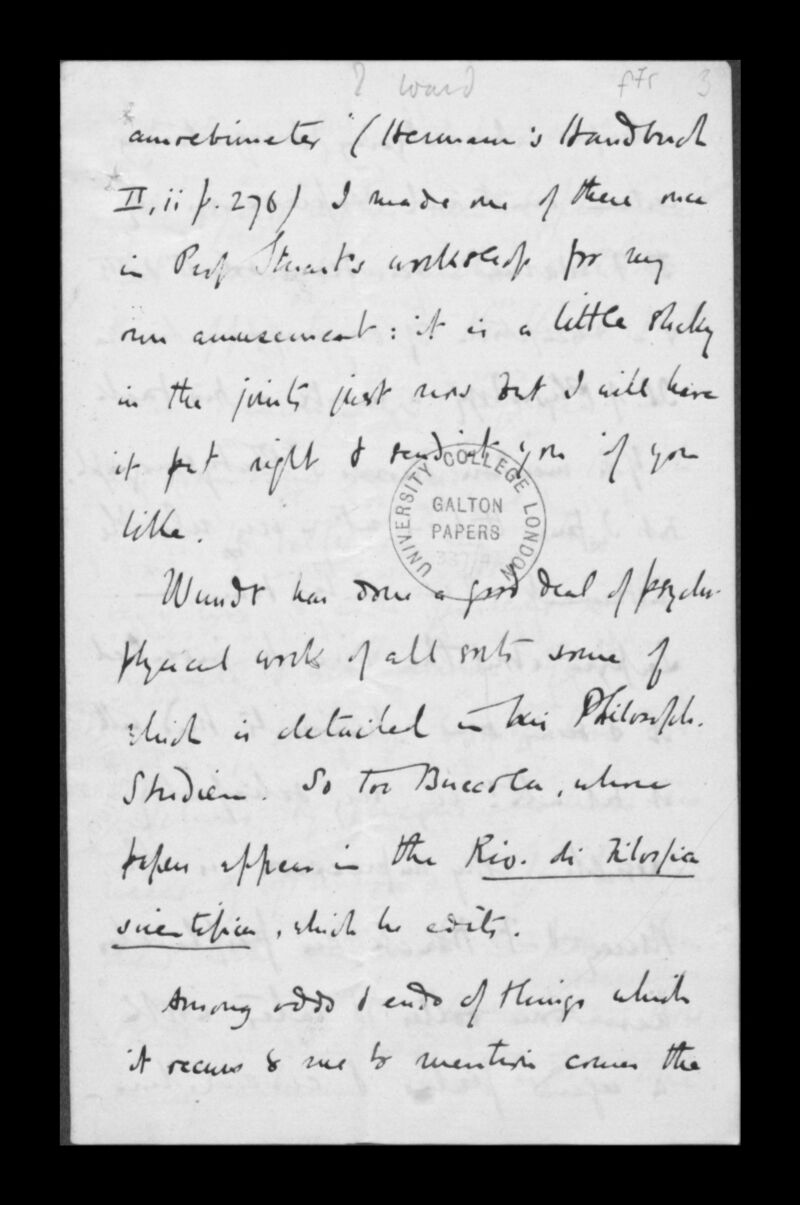 ? Ward f7r 3
amoebimeter" (Hermann's Handbuch
II, ii p. 276) I made one of these once
in Prof Stuart's workshop for my
own amusement: it is a little shaky
in the joints just now but I will have
it put right & send it you if you
like.
UNIVERSITY COLLEGE LONDON
GALTON
PAPERS
Wundt has done a good deal of psycho-
physical work of all sorts some of
which is detailed in his Philosoph.
Studien. So too Buccola, whose
papers appear in the Riv. di Filosofia
scientifica, which he edits.
Among odds & ends of things which
it occurs to me to mention comes the